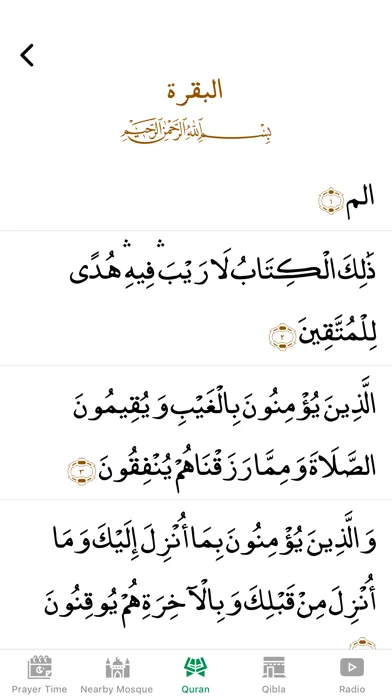 البقرة
بسم الله الرحمن الرحيم
الم ١
ذَٰلِكَ الْكِتَابُ لَا رَيْبَ ۛ فِيهِ ۛ هُدًى
لِلْمُتَّقِينَ ٢
الَّذِينَ يُؤْمِنُونَ بِالْغَيْبِ وَيُقِيمُونَ
الصَّلَاةَ وَمِمَّا رَزَقْنَاهُمْ يُنْفِقُونَ ٣
وَالَّذِينَ يُؤْمِنُونَ بِمَا أُنْزِلَ إِلَيْكَ وَمَا
أُنْزِلَ مِنْ قَبْلِكَ وَبِالْآخِرَةِ هُمْ يُوقِنُونَ
Prayer Time Nearby Mosque Quran Qibla Radio